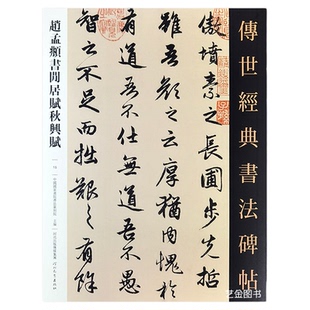 傳世經典書法碑帖
傲墳素之長圃步先哲
雖吾顏之云厚猶内愧於
有道吾不仕無道吾不愚
智之不足而拙艱之有餘
趙孟頫書閒居賦秋興賦
艺金图书